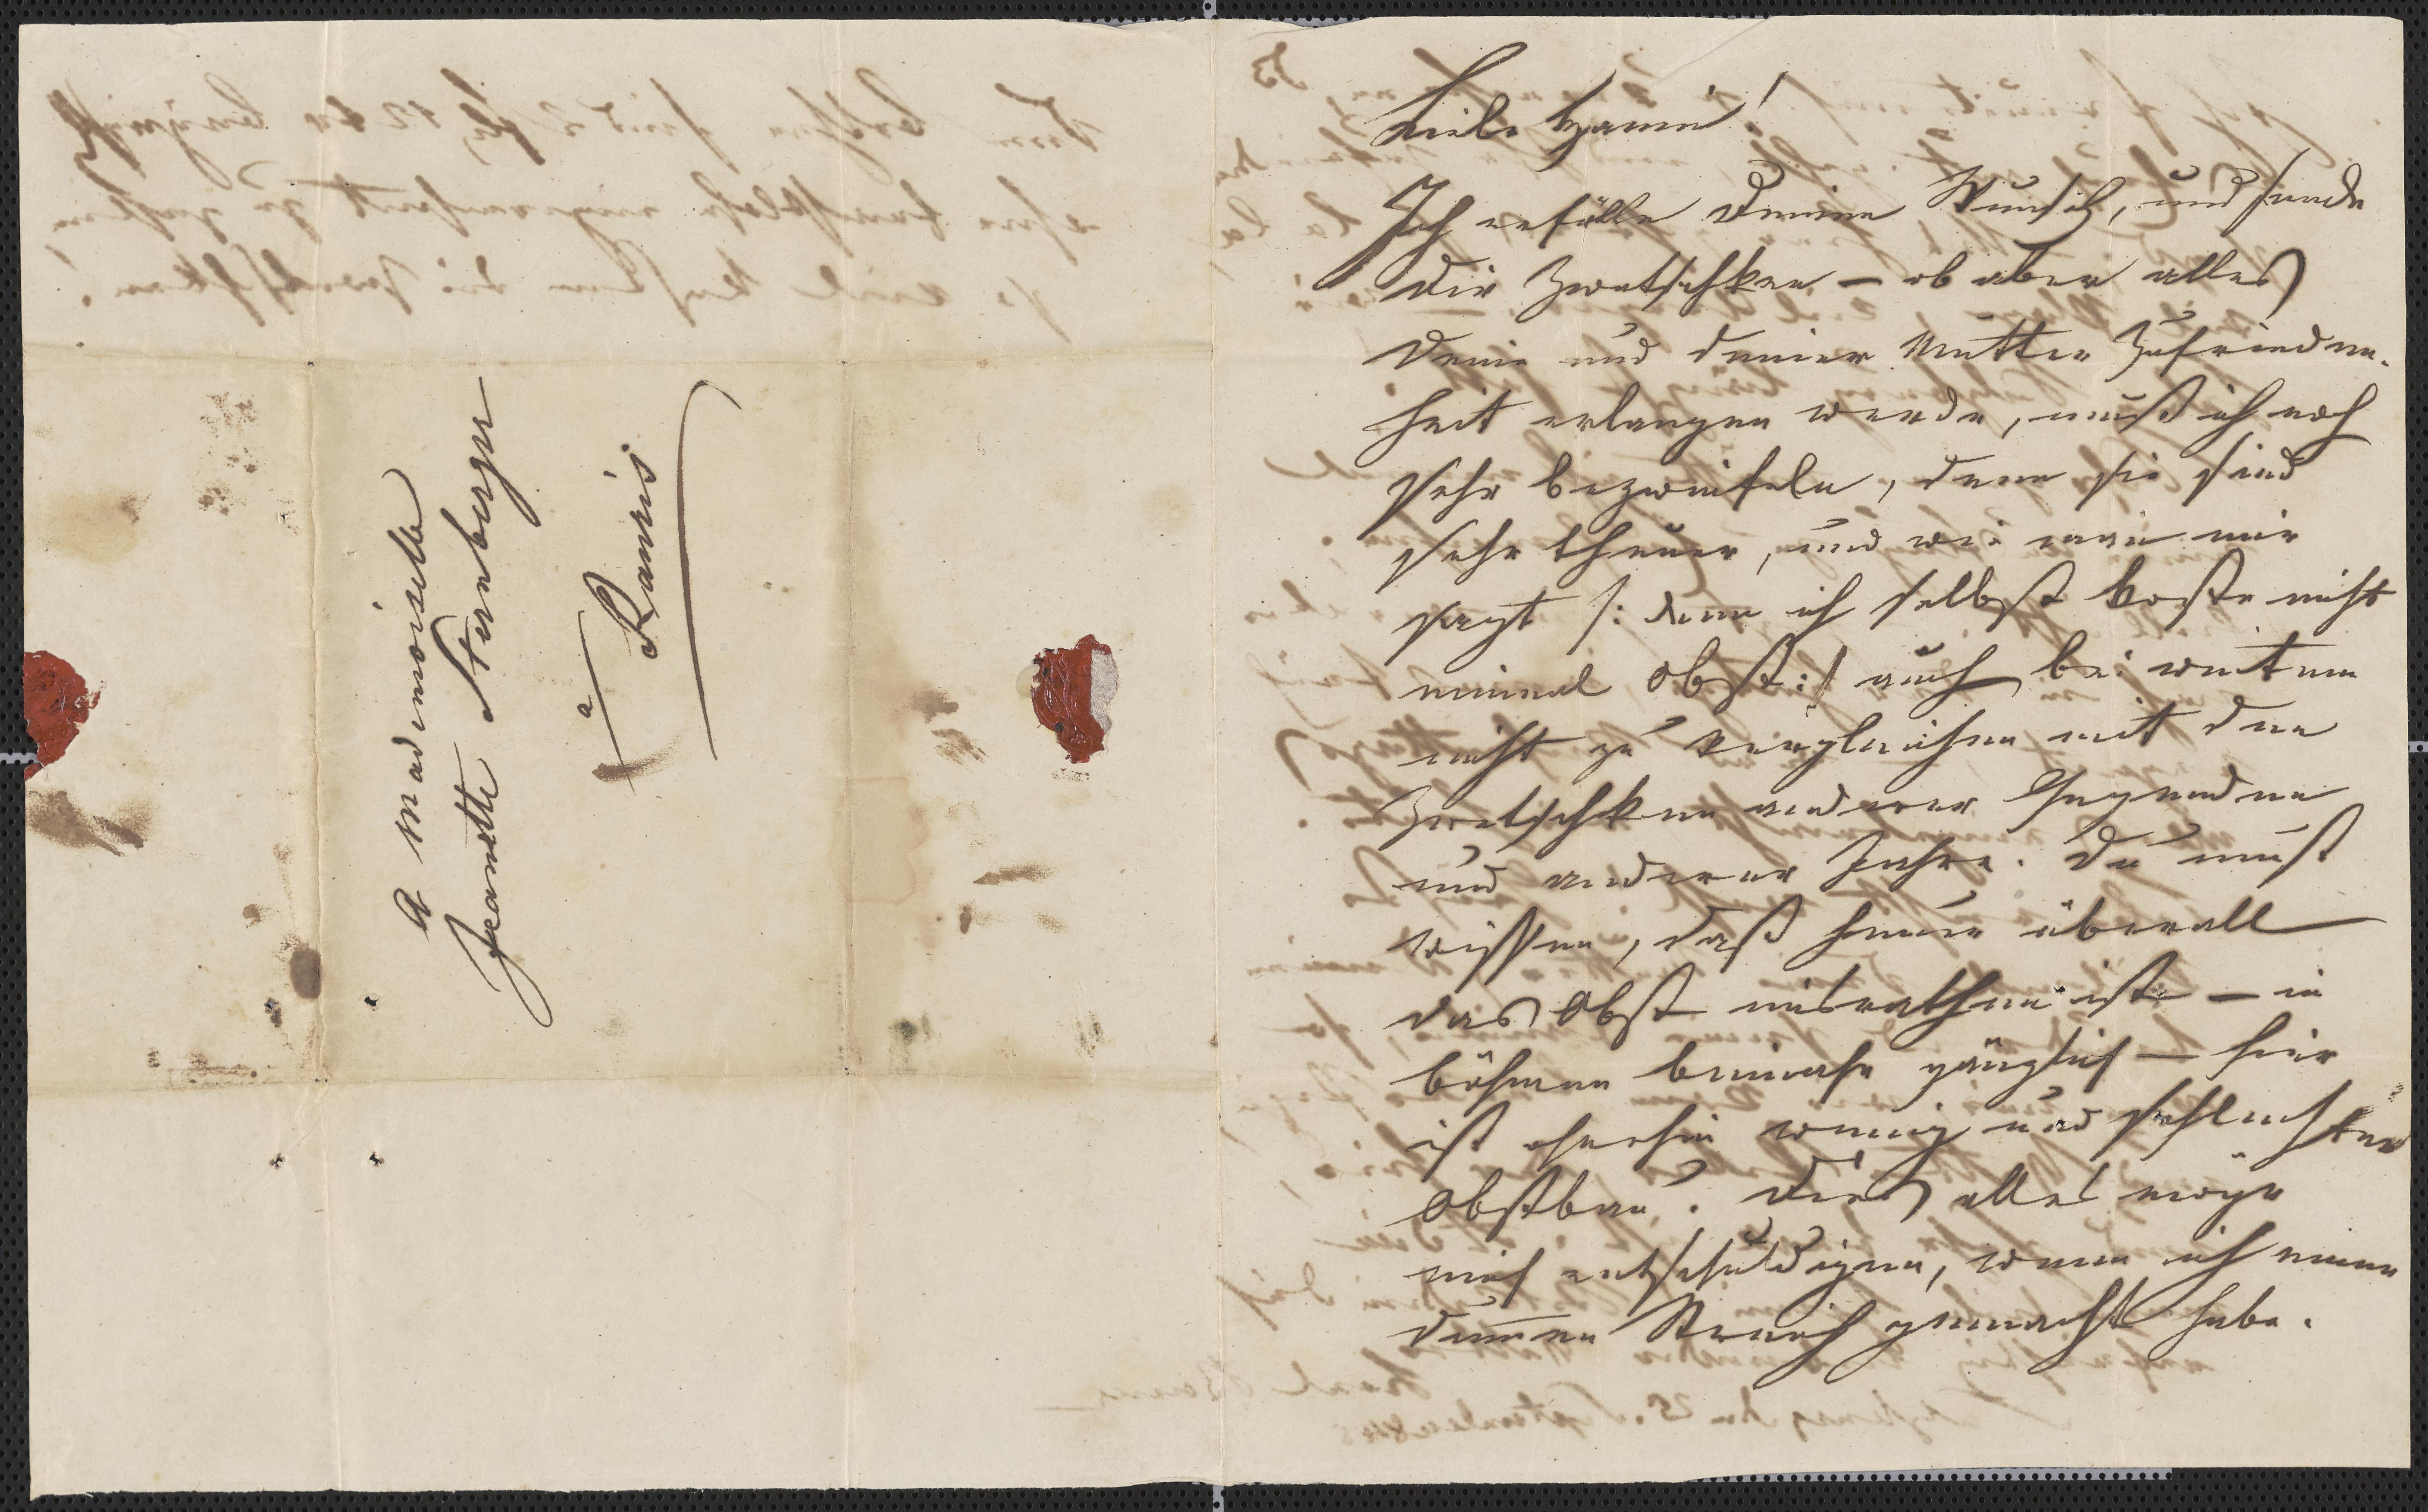 A Mademoiselle
Jeanette Sternberger
à
Raunis
Liebe Hanni!
Ich erfülle Deinen Wunsch, und sende
Dir Zwetschken – ob aber alles
Deine und Deiner Mutter Zufrieden-
heit erlangen werde, muß ich noch
sehr bezweifeln, denn sie sind
sehr theuer, und wie man mir
sagt /: denn ich selbst koste nicht
einmal Obst :/ auch bei weitem
nicht zu vergleichen mit den
Zwetschken anderer Gegenden
und anderer Jahre. Du mußt
wissen, daß heuer überall
das Obst misrathen ist – in
Böhmen beinahe gänzlich – hier
ist ohnehin wenig und schlechter
Obstbau. Dies alles möge
mich entschuldigen, wenn ich einen
dummen Streich gemacht habe.